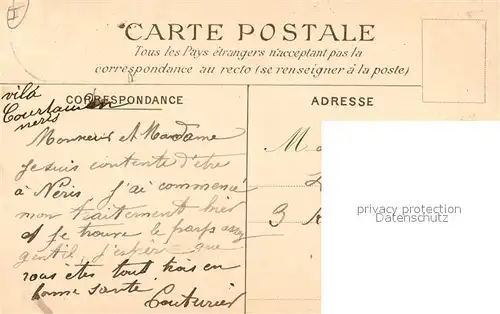 CARTE POSTALE
Tous les Pays étrangers n'acceptant pas la
correspondance au recto (se renseigner à la poste)
CORRESPONDANCE
ADRESSE
vila
neris
Monsieur et Madame
Je suis contente d'être
à Néris j'ai commencé
mon traitement hier
et je trouve le pays assez
gentil, j'espère que
vous êtes tout trois en
bonne sante
Couturier
M
3
privacy protection
Datenschutz